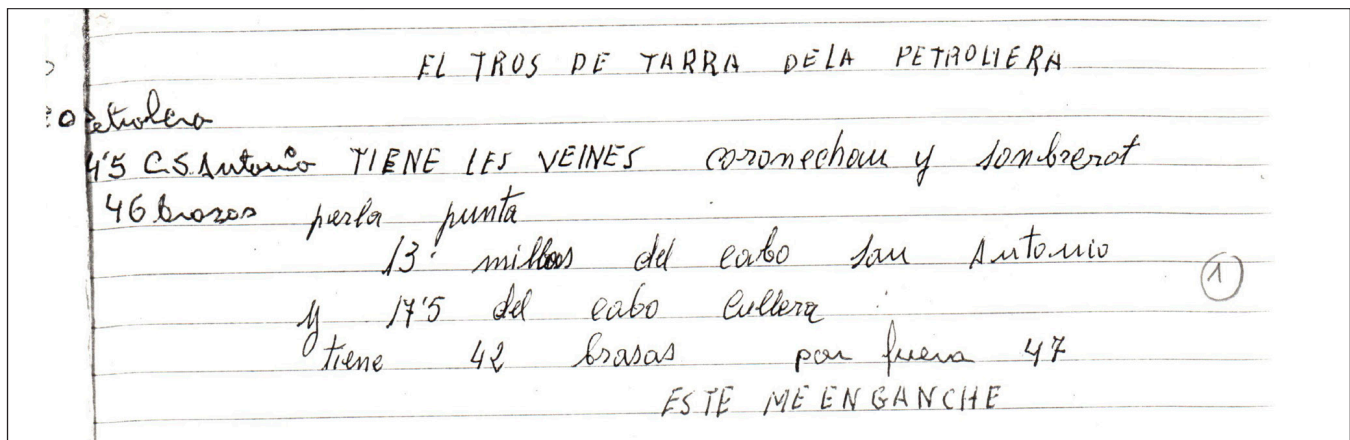 EL TROS DE TARRA DELA PETROLIERA
Petrolero
4'5 C.S. Antonio TIENE LES VEINES coronechau y sonbrerot
46 brazos perla punta
13' millas del cabo san Antonio
1
y 17'5 del cabo Cullera
tiene 42 brasas por fuera 47
ESTE ME ENGANCHE